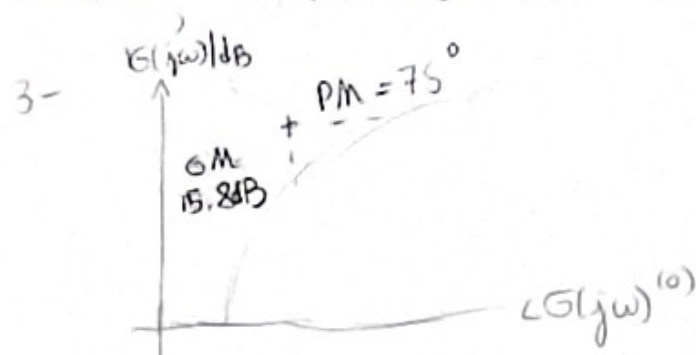 |G(jω)|dB
3-
PM = 75°
+
GM
15.8dB
∠G(jω)(°)